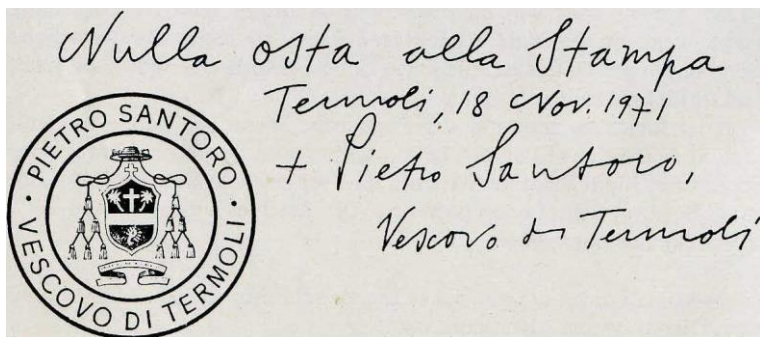 Nulla osta alla Stampa
Termoli, 18 Nov. 1971
+ Pietro Santoro,
Vescovo di Termoli
· PIETRO SANTORO ·
VESCOVO DI TERMOLI